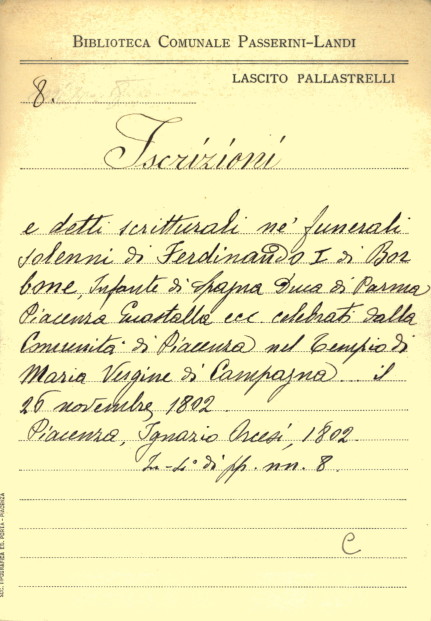 BIBLIOTECA COMUNALE PASSERINI-LANDI
LASCITO PALLASTRELLI
8.
Iscrizioni
e detti scritturali ne' funerali
solenni di Ferdinando I di Bor
bone, Infante di Spagna Duca di Parma
Piacenza Guastalla ecc. celebrati dalla
Comunità di Piacenza nel Tempio di
Maria Vergine di Campagna... il
26 novembre 1802.
Piacenza, Ignazio Orcesi, 1802.
In-4° di pp. nn. 8.
C